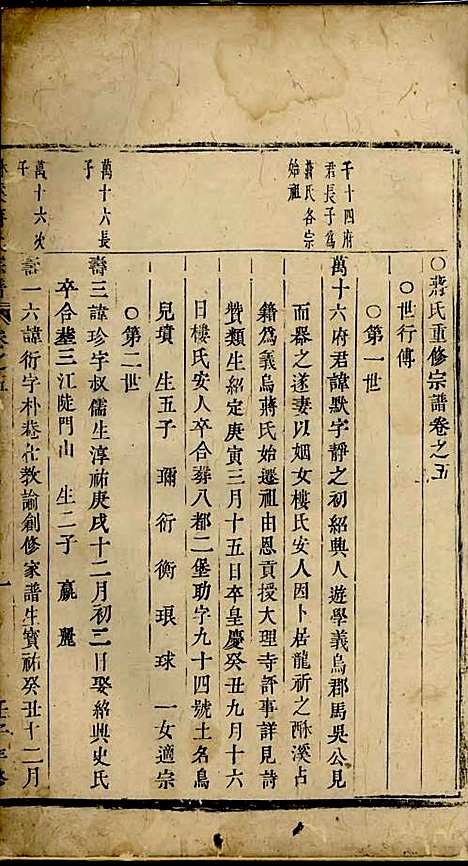 ○蔣氏重修宗譜卷之五
○世行傳
○第一世
千十四府
君長子爲
蔣氏各宗
始祖
萬十六府君諱默字靜之初紹興人遊學義烏郡馬吳公見
而器之遂妻以姻女樓氏安人因卜居龍祈之酥溪占
籍爲義烏蔣氏始遷祖由恩貢授大理寺評事詳見詩
贊類生紹定庚寅三月十五日卒皇慶癸丑九月十六
日樓氏安人卒合葬八都二堡助字九十四號土名鳥
兒墳 生五子 瓛 衍 衡 琅 球 一女適宗
○第二世
萬十六長
子
壽三諱珍字叔儒生淳祐庚戌十二月初二日娶紹興史氏
卒合塟三江陡門山 生二子 嬴 麗
萬十六次
子
壽一六諱衍字朴菴仕教諭創修家譜生寶祐癸丑十二月